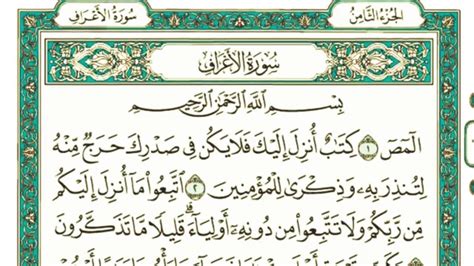 سُورَةُ الأَعْرَافِ
الجُزْءُ الثَّامِنُ
سُورَةُ الأَعْرَافِ
بِسْمِ اللَّهِ الرَّحْمَٰنِ الرَّحِيمِ
الٓمٓصٓ ١ كِتَٰبٌ أُنزِلَ إِلَيْكَ فَلَا يَكُن فِى صَدْرِكَ حَرَجٌ مِّنْهُ
لِتُنذِرَ بِهِۦ وَذِكْرَىٰ لِلْمُؤْمِنِينَ ٢ ٱتَّبِعُوا۟ مَآ أُنزِلَ إِلَيْكُم
مِّن رَّبِّكُمْ وَلَا تَتَّبِعُوا۟ مِن دُونِهِۦٓ أَوْلِيَآءَ ۗ قَلِيلًا مَّا تَذَكَّرُونَ